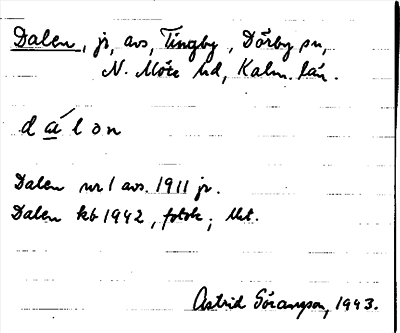 Dalen, jr, avs, Tingby, Dörby sn,
N. Möre hd, Kalm. län.
dálon
Dalen nr 1 avs. 1911 jr.
Dalen kb 1942, fotok; Ukt.
Astrid Göransson, 1943.